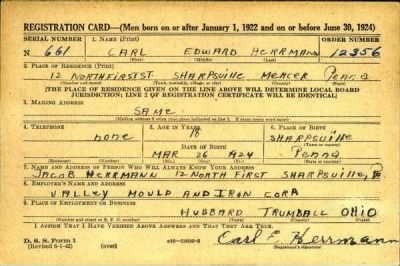 REGISTRATION CARD—(Men born on or after January 1, 1922 and on or before June 30, 1924)
SERIAL NUMBER 1. NAME (Print) ORDER NUMBER
N 661 CARL EDWARD HERRMANN 12356
(First) (Middle) (Last)
2. PLACE OF RESIDENCE (Print)
12 NORTH FIRST ST. SHARPSVILLE MERCER Penna
(Number and street) (Town, township, village, or city) (County) (State)
[THE PLACE OF RESIDENCE GIVEN ON THE LINE ABOVE WILL DETERMINE LOCAL BOARD
JURISDICTION; LINE 2 OF REGISTRATION CERTIFICATE WILL BE IDENTICAL]
3. MAILING ADDRESS
SAME
[Mailing address if other than place indicated on line 2. If same insert word same]
4. TELEPHONE 5. AGE IN YEARS 6. PLACE OF BIRTH
none 18 SHARPSVILLE
DATE OF BIRTH (Town or county)
MAR 26 1924 Penna
(Exchange) (Number) (Mo.) (Day) (Yr.) (State or country)
7. NAME AND ADDRESS OF PERSON WHO WILL ALWAYS KNOW YOUR ADDRESS
JACOB HERRMANN 12 NORTH FIRST SHARPSVILLE,
8. EMPLOYER'S NAME AND ADDRESS
VALLEY MOULD AND IRON CORP
9. PLACE OF EMPLOYMENT OR BUSINESS
HUBBARD TRUMBALL OHIO
(Number and street or R. F. D. number) (Town) (County) (State)
I AFFIRM THAT I HAVE VERIFIED ABOVE ANSWERS AND THAT THEY ARE TRUE.
D. S. S. Form 1
(Revised 6-1-42) (over) Carl E. Herrmann